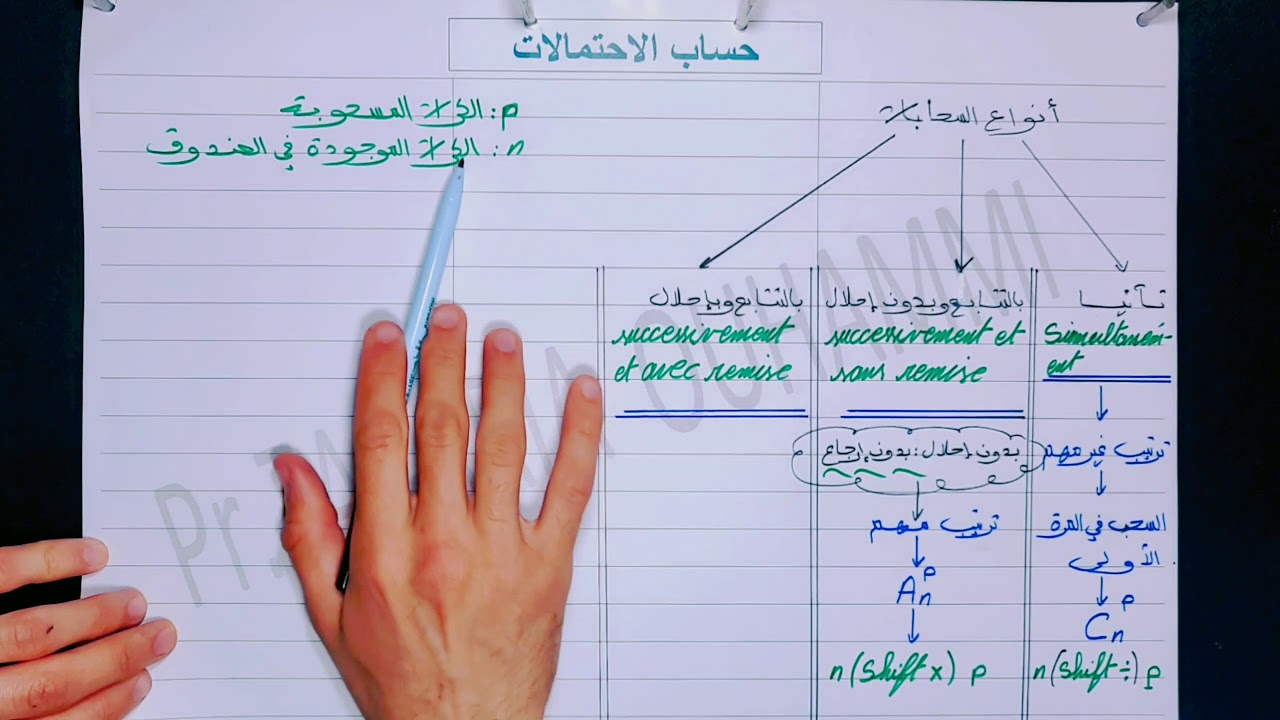 حساب الاحتمالات
أنواع السحابات
p: الكرات المسحوبة
n: الكرات الموجودة في الصندوق
تآنيا
Simultaném-
ent
ترتيب غير مهم
السحب في المرة
الأولى
C_n^p
n (Shift ÷) p
بالتتابع وبدون إحلال
successivement et
sans remise
بدون إحلال: بدون إرجاع
ترتيب مهم
A_n^p
n (Shift x) p
بالتتابع وبإحلال
successivement
et avec remise
OUHAMMI